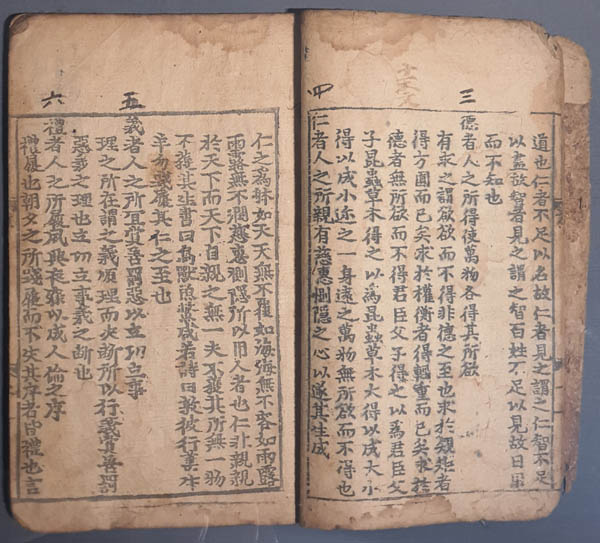 三
道也仁者不足以名故仁者見之謂之仁智不足
以盡故智者見之謂之智百姓不足以見故日用
而不知也
德者人之所得使萬物各得其所欲
有求之謂欲欲而不得非德之至也求於規矩者
得方圓而已矣求於權衡者得輕重而已矣求於
德者無所欲而不得君臣父子得之以爲君臣父
子昆蟲草木得之以爲昆蟲草木大得以成大小
得以成小迩之一身遠之萬物無所欲而不得也
四
仁者人之所親有慈惠惻隱之心以遂其生成
仁之爲躰如天天無不覆如海海無不容如雨露
雨露無不潤慈惠惻隱所以用人者也仁非親親
於天下而天下自親之無一夫不獲其所無一物
不獲其生書曰鳥獸魚鱉咸若詩曰敦彼行葦牛
羊勿踐履其仁之至也
五
義者人之所宜賞善罰惡以立功立事
理之所在謂之義順理而决斷所以行義賞善罰
惡義之理也立功立事義之斷也
六
禮者人之所履夙興夜寐以成人倫之序
禮履也朝夕之所踐履而不失其序者皆禮也言